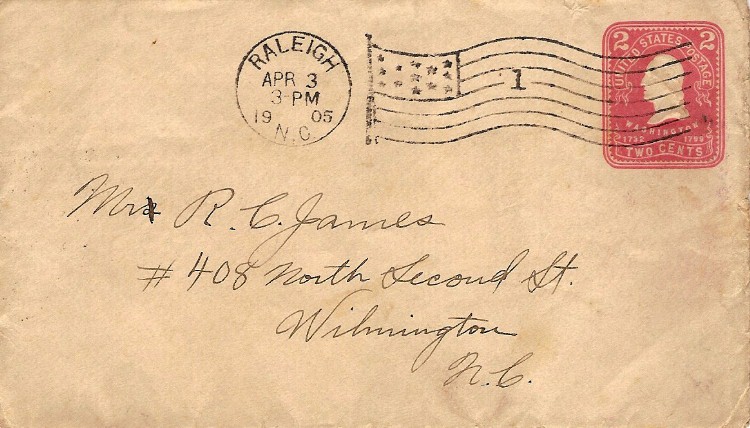 RALEIGH
APR 3
3-PM
19 05
N.C.
1
2 UNITED STATES POSTAGE 2
WASHINGTON
1732 1799
TWO CENTS
Mrs R. C. James
# 408 North Second St.
Wilmington
N.C.